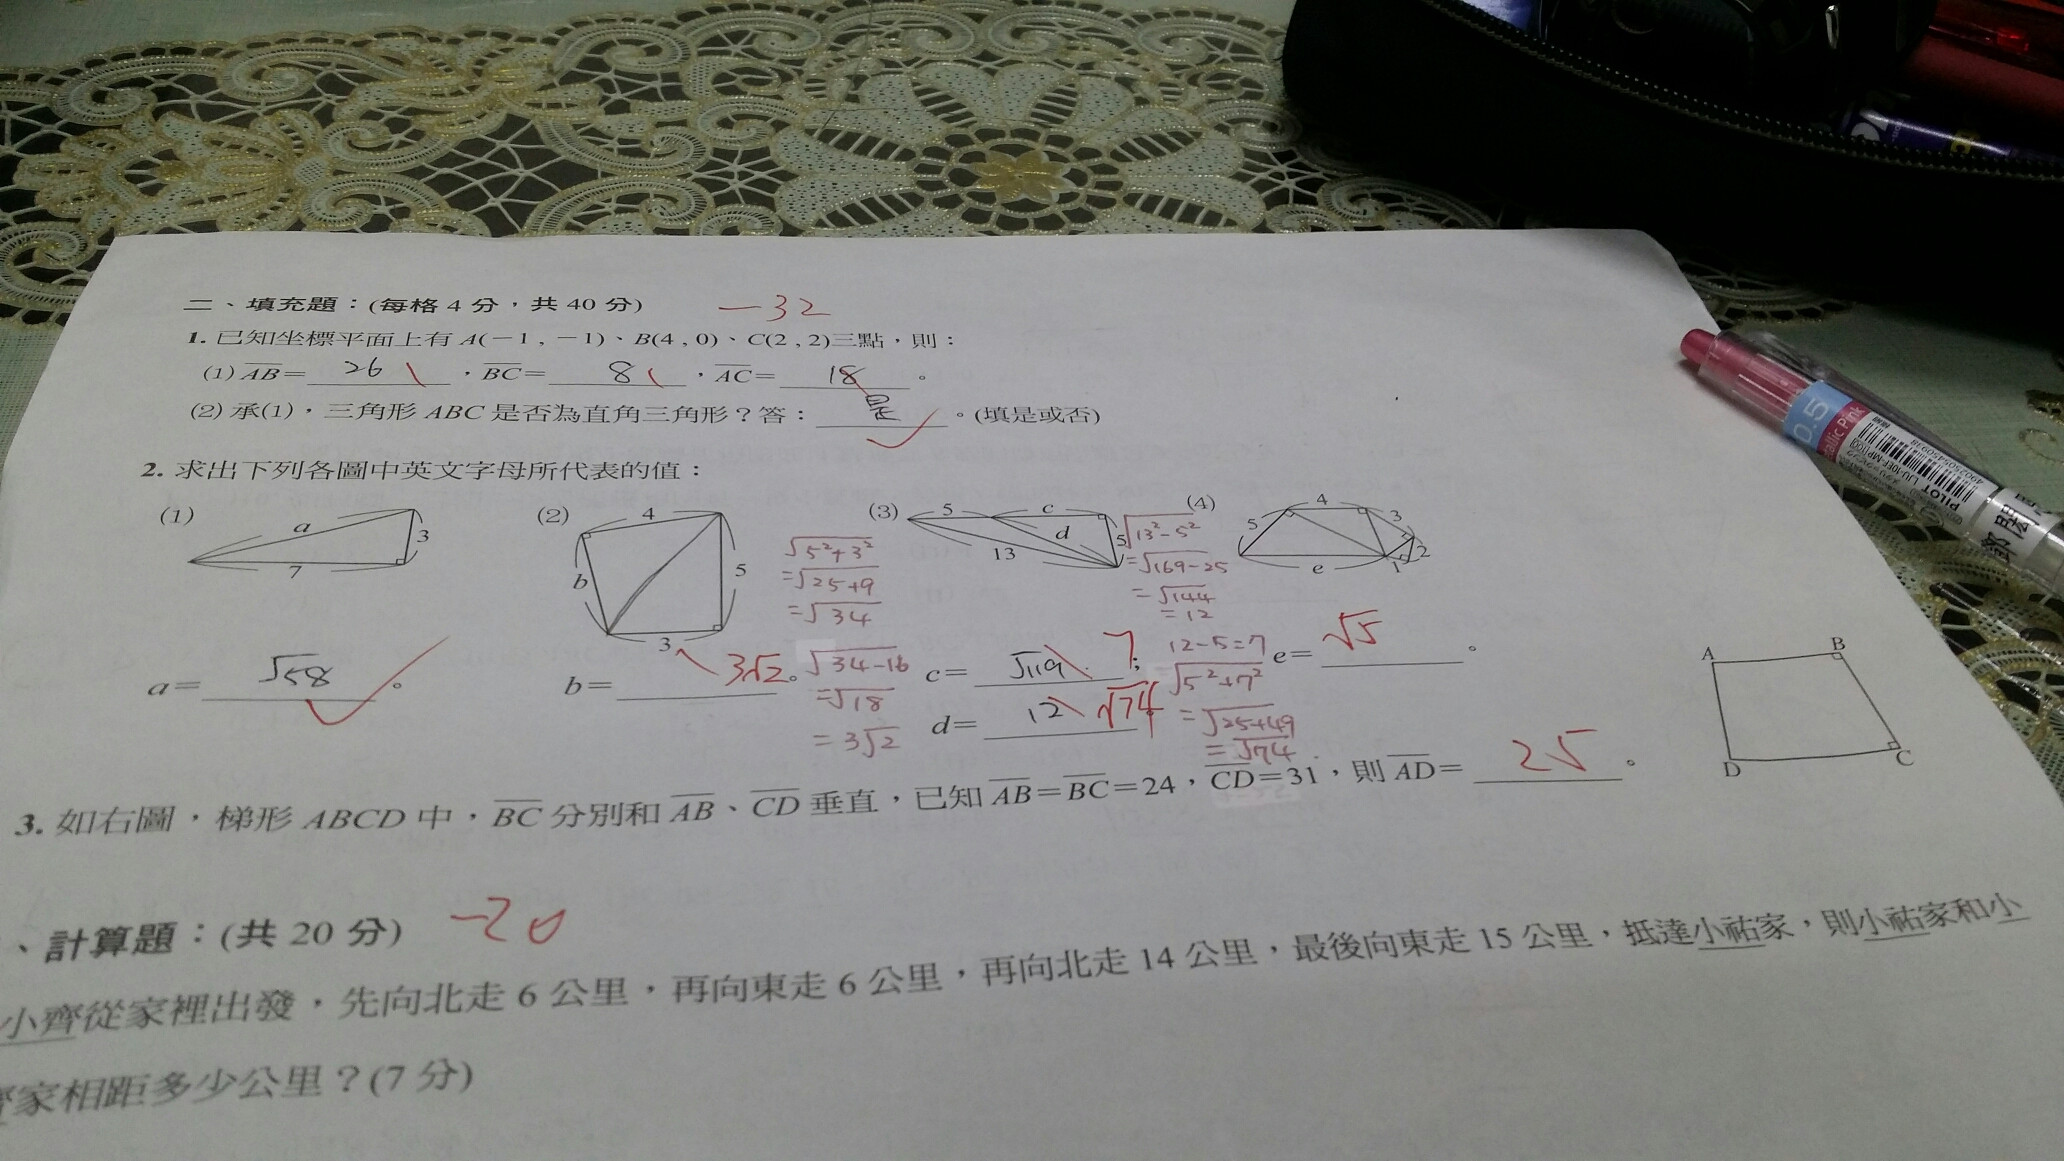 二、填充題：(每格 4 分，共 40 分) －32
1. 已知坐標平面上有 A(－1 , －1)、B(4 , 0)、C(2 , 2)三點，則：
(1) AB＝ 26 ，BC＝ 8 ，AC＝ 18 。
(2) 承(1)，三角形 ABC 是否為直角三角形？答： 是 。(填是或否)
2. 求出下列各圖中英文字母所代表的值：
(1) a 3 7
(2) 4 b 5 3
√5²+3²
=√25+9
=√34
√34-16
=√18
=3√2
(3) 5 c d 13 5
√13²-5²
=√169-25
=√144
=12
12-5=7
√5²+7²
=√25+49
=√74
(4) 4 5 3 2 1 e
a＝ √58 。
b＝ 3√2 。
c＝ √119 7 ;
d＝ 12 √74
e＝ √5 。
3. 如右圖，梯形 ABCD 中，BC 分別和 AB、CD 垂直，已知 AB＝BC＝24，CD＝31，則 AD＝ 25 。
A B
D C
、計算題：(共 20 分) －20
小齊從家裡出發，先向北走 6 公里，再向東走 6 公里，再向北走 14 公里，最後向東走 15 公里，抵達小祐家，則小祐家和小
齊家相距多少公里？(7 分)
0.5
Metallic Pink
PILOT
LJU-10EF-MP
4902505450938